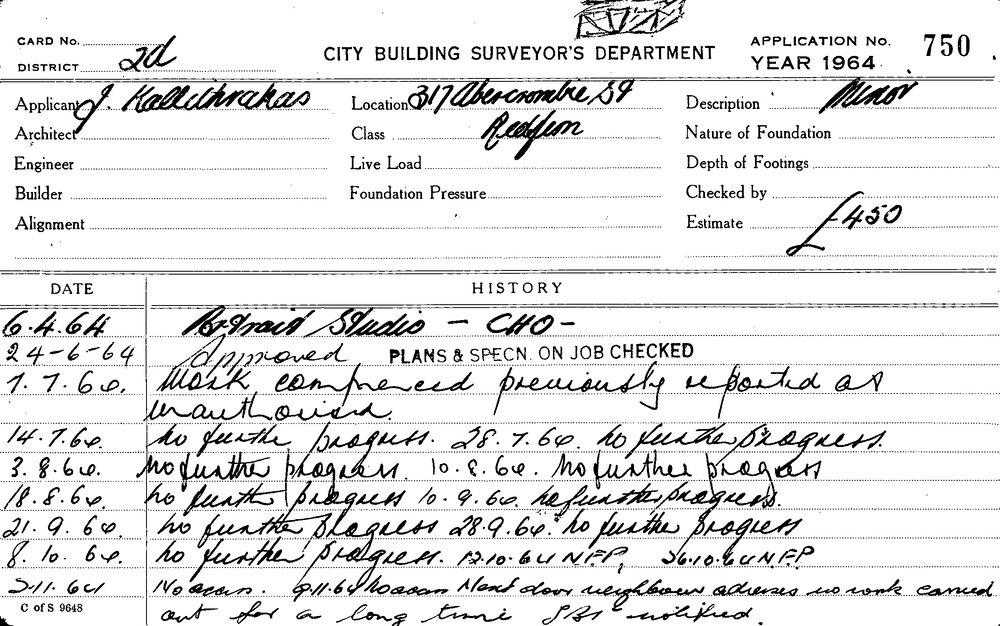 CARD No.
CITY BUILDING SURVEYOR'S DEPARTMENT
APPLICATION No. 750
DISTRICT 2d
YEAR 1964
Applicant J. Kallithrakas
Location 317 Abercrombie St
Description Minor
Architect
Class Redfern
Nature of Foundation
Engineer
Live Load
Depth of Footings
Builder
Foundation Pressure
Checked by
Alignment
Estimate £450
DATE HISTORY
6.4.64 Portrait Studio - CHO -
24-6-64 Approved PLANS & SPECN. ON JOB CHECKED
7.7.64. Work commenced previously reported as
unauthorised.
14.7.64. No further progress. 28.7.64. No further progress.
3.8.64. No further progress. 10.8.64. No further progress
18.8.64. No further progress 10.9.64 no further progress.
21.9.64. No further progress 28.9.64. No further progress
8.10.64. No further progress. 12.10.64 N.F.P. 26.10.64 N.F.P
2.11.64 No access. 9.11.64 No access Next door neighbour advises no work carried
out for a long time notified.
C of S 9648